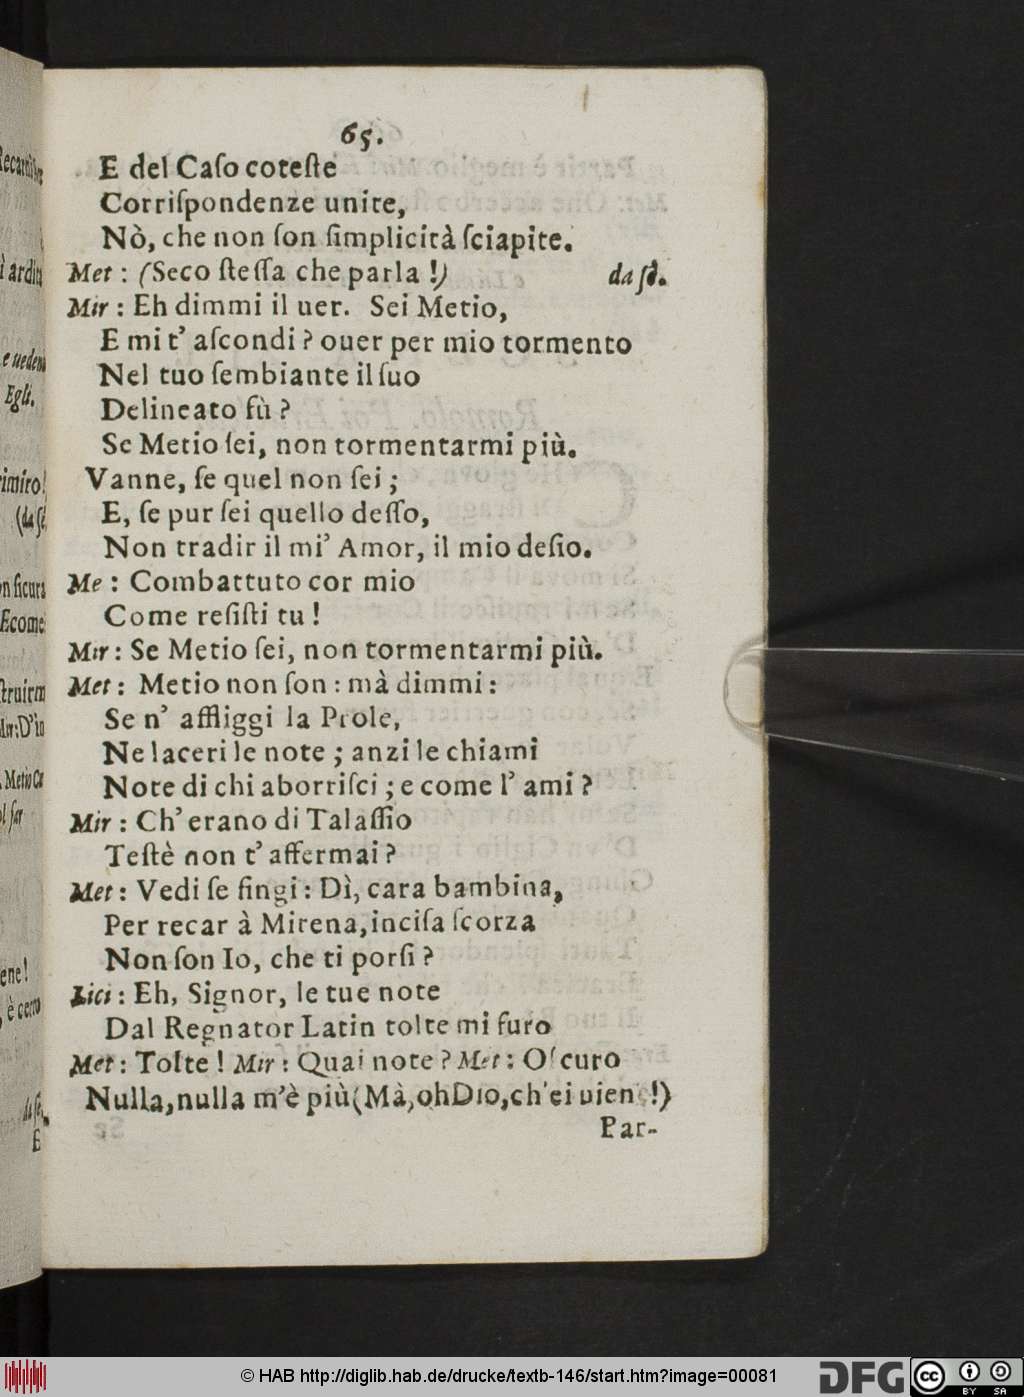 65.
E del Caſo coteſte
Corriſpondenze unite,
Nò, che non ſon ſimplicità ſciapite.
Met : (Seco ſteſſa che parla !) da ſè.
Mir : Eh dimmi il uer. Sei Metio,
E mi t' aſcondi ? ouer per mio tormento
Nel tuo ſembiante il ſuo
Delineato fù ?
Se Metio ſei, non tormentarmi più.
Vanne, ſe quel non ſei ;
E, ſe pur ſei quello deſſo,
Non tradir il mi' Amor, il mio deſio.
Me : Combattuto cor mio
Come reſiſti tu !
Mir : Se Metio ſei, non tormentarmi più.
Met : Metio non ſon : mà dimmi :
Se n' affliggi la Prole,
Ne laceri le note ; anzi le chiami
Note di chi aborriſci ; e come l' ami ?
Mir : Ch' erano di Talaſſio
Teſtè non t' affermai ?
Met : Vedi ſe fingi : Dì, cara bambina,
Per recar à Mirena, inciſa ſcorza
Non ſon Io, che ti porſi ?
Lici : Eh, Signor, le tue note
Dal Regnator Latin tolte mi furo
Met : Tolte ! Mir : Quai note ? Met : Oſcuro
Nulla, nulla m'è più (Mà, oh Dio, ch' ei uiene !)
Par-
© HAB http://diglib.hab.de/drucke/textb-146/start.htm?image=00081
DFG
cc
BY SA